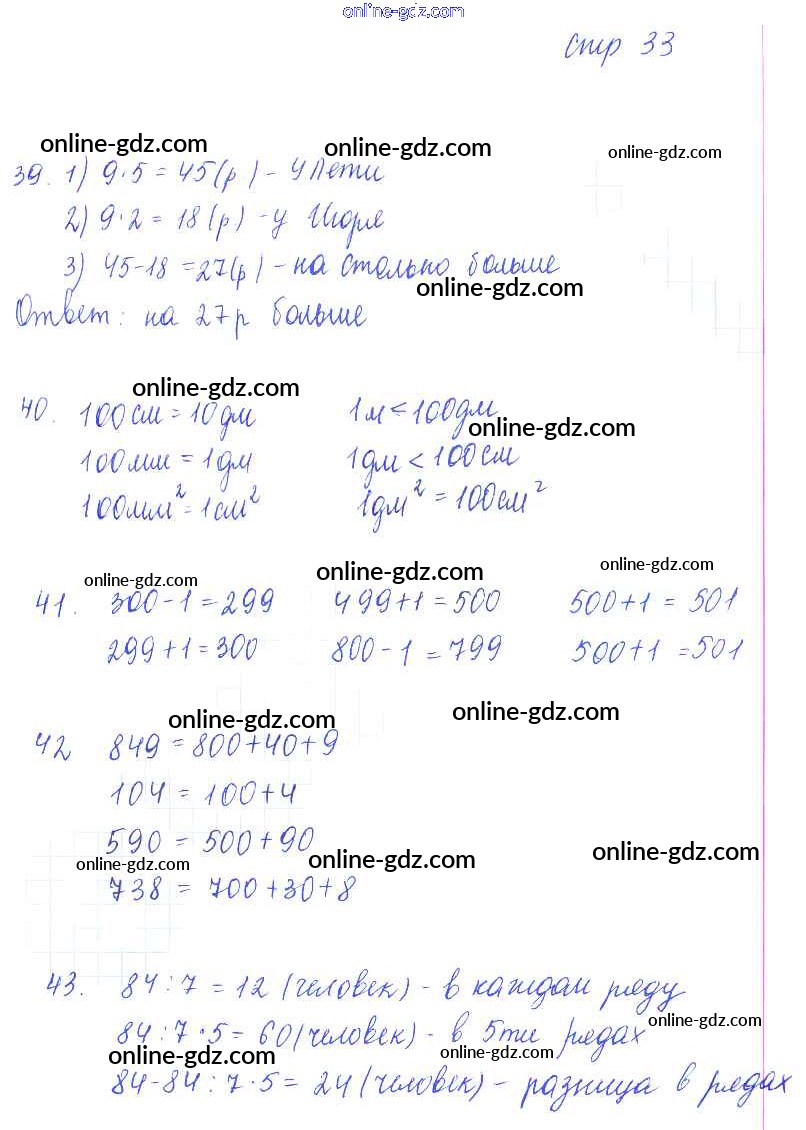 online-gdz.com
стр 33
online-gdz.com online-gdz.com online-gdz.com
39. 1) 9·5 = 45(р) - У Пети
2) 9·2 = 18 (р) - у Игоря
3) 45-18 = 27(р) - на столько больше
online-gdz.com
Ответ: на 27р больше
online-gdz.com
40. 100см = 10дм 1м < 100дм
online-gdz.com
100мм = 1дм 1дм < 100см
100мм² = 1см² 1дм² = 100см²
online-gdz.com online-gdz.com online-gdz.com
41. 300-1 = 299 499+1 = 500 500+1 = 501
299+1 = 300 800-1 = 799 500+1 = 501
online-gdz.com online-gdz.com
42 849 = 800+40+9
104 = 100+4
590 = 500+90
online-gdz.com online-gdz.com online-gdz.com
738 = 700+30+8
43. 84:7 = 12 (человек) - в каждом ряду
online-gdz.com
84:7·5 = 60(человек) - в 5ти рядах
online-gdz.com online-gdz.com
84-84:7·5 = 24 (человек) - разница в рядах